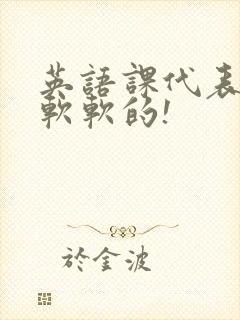 英語課代表
軟軟的!
於金波